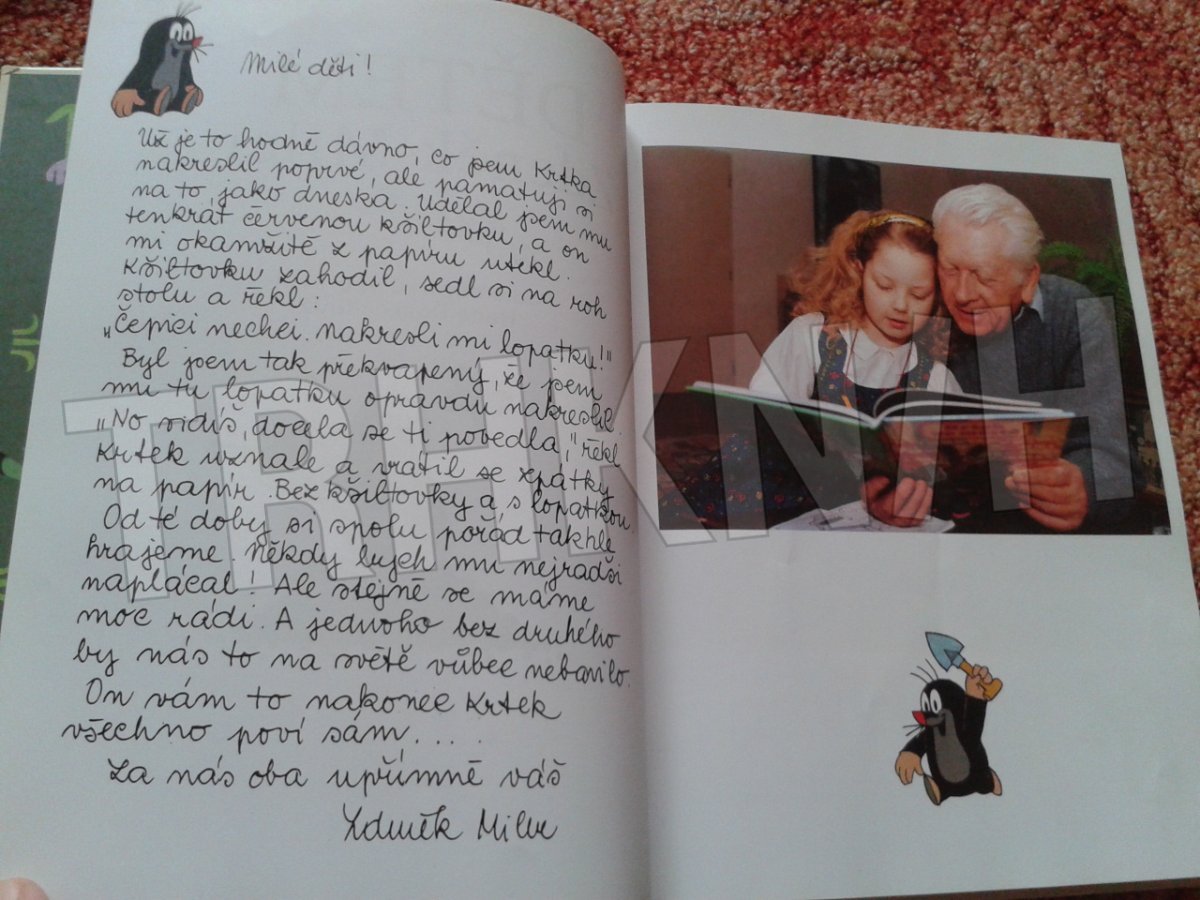 Milé děti!
Už je to hodně dávno, co jsem Krtka
nakreslil poprvé, ale pamatuji si
na to, jako dneska. Udělal jsem mu
tenkrát červenou kšiltovku, a on
mi okamžitě z papíru utekl.
Kšiltovku zahodil, sedl si na roh
stolu a řekl:
„Čepici nechci. nakresli mi lopatku!"
Byl jsem tak překvapený, že jsem
mu tu lopatku opravdu nakreslil
„No vidíš, docela se ti povedla," řekl
Krtek uznale a vrátil se zpátky
na papír. Bez kšiltovky a s lopatkou.
Od té doby si spolu pořád takhle
hrajeme. Někdy bych mu nejradši
naplácal! Ale stejně se máme
moc rádi. A jednoho bez druhého
by nás to na světě vůbec nebavilo.
On vám to nakonec Krtek
všechno poví sám....
Za nás oba upřímně váš
Zdeněk Miler
TRHKNIH